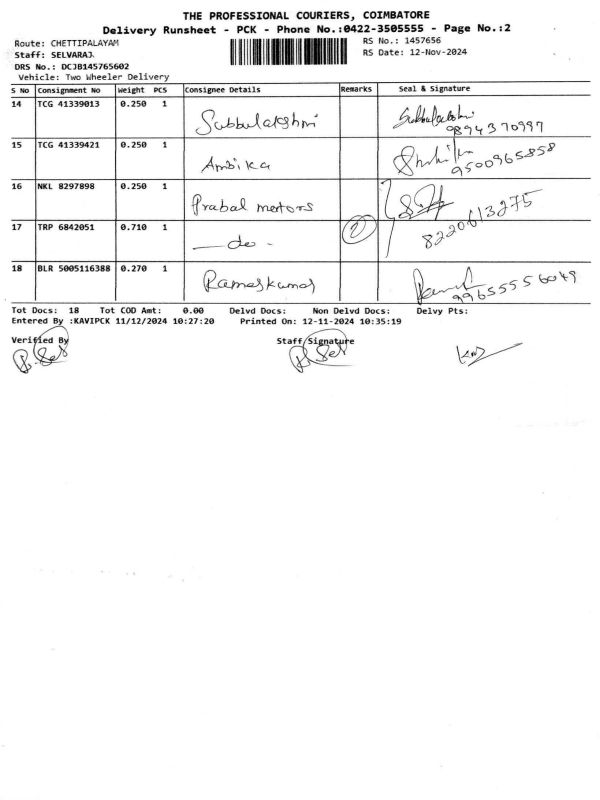 THE PROFESSIONAL COURIERS, COIMBATORE
Delivery Runsheet - PCK - Phone No.:0422-3505555 - Page No.:2
Route: CHETTIPALAYAM
RS No.: 1457656
Staff: SELVARAJ
RS Date: 12-Nov-2024
DRS No.: DCJB145765602
Vehicle: Two Wheeler Delivery
S No Consignment No Weight PCS Consignee Details Remarks Seal & Signature
14 TCG 41339013 0.250 1 Subbulakshmi Subbulakshmi
9894370997
15 TCG 41339421 0.250 1 Ambika
9500965858
16 NKL 8297898 0.250 1 Prabal mertors
8220613275
17 TRP 6842051 0.710 1 — do - 2
18 BLR 5005116388 0.270 1 Rameskumar
99655556049
Tot Docs: 18 Tot COD Amt: 0.00 Delvd Docs: Non Delvd Docs: Delvy Pts:
Entered By :KAVIPCK 11/12/2024 10:27:20 Printed On: 12-11-2024 10:35:19
Verified By Staff Signature